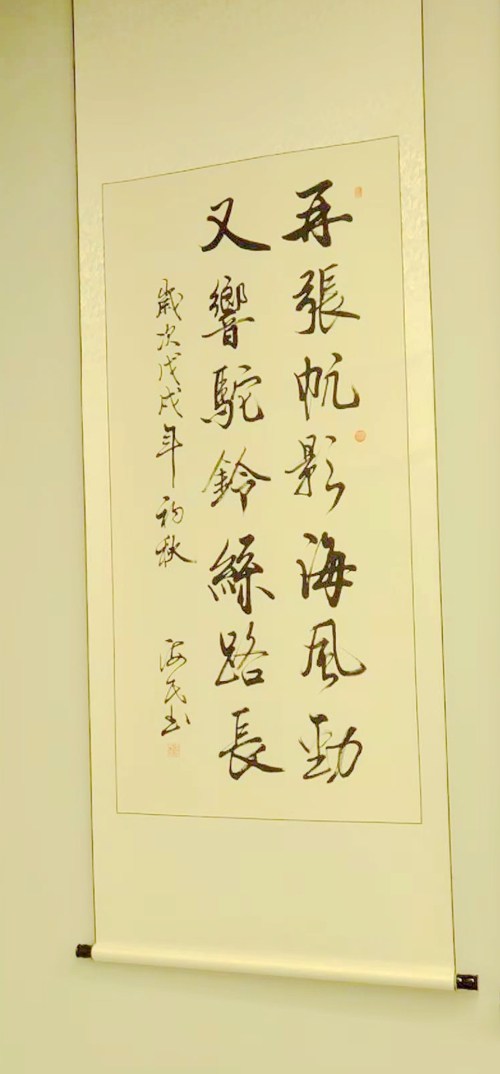 再張帆影海風勁
又響駝鈴絲路長
歲次戊戌年初秋
海民书